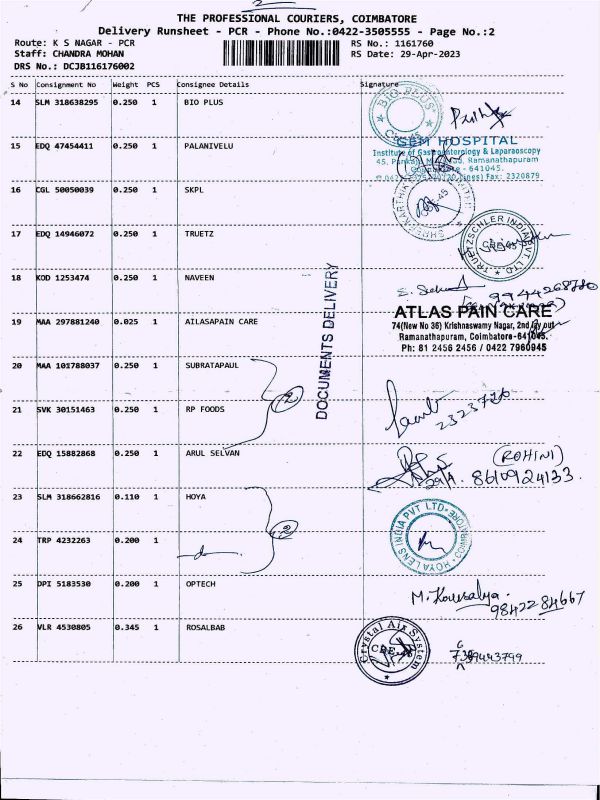 2
THE PROFESSIONAL COURIERS, COIMBATORE
Delivery Runsheet - PCR - Phone No.:0422-3505555 - Page No.:2
Route: K S NAGAR - PCR
RS No.: 1161760
Staff: CHANDRA MOHAN
RS Date: 29-Apr-2023
DRS No.: DCJB116176002
S No Consignment No Weight PCS Consignee Details Signature
14 SLM 318638295 0.250 1 BIO PLUS
BIO PLUS
GEM HOSPITAL
Institute of Gastroenterology & Laparaoscopy
Ramanathapuram
Coimbatore - 641045.
Fax: 2320879
15 EDQ 47454411 0.250 1 PALANIVELU
16 CGL 50050039 0.250 1 SKPL
17 EDQ 14946072 0.250 1 TRUETZ
TRUETZSCHLER INDIA PVT. LTD
18 KOD 1253474 0.250 1 NAVEEN
DOCUMENTS DELIVERY
19 MAA 297881240 0.025 1 AILASAPAIN CARE
ATLAS PAIN CARE
74(New No 36) Krishnaswamy Nagar, 2nd lay out
Ramanathapuram, Coimbatore-641045.
Ph: 81 2456 2456 / 0422 7960945
20 MAA 101788037 0.250 1 SUBRATAPAUL
2
21 SVK 30151463 0.250 1 RP FOODS
2323726
22 EDQ 15882868 0.250 1 ARUL SELVAN
(ROHINI)
29/4. 8610924133.
23 SLM 318662816 0.110 1 HOYA
2
HOYA LENS INDIA PVT LTD
COIMBATORE
24 TRP 4232263 0.200 1
25 DPI 5183530 0.200 1 OPTECH
M. Kousalya.
9842284667
26 VLR 4530805 0.345 1 ROSALBAB
Crystal Air System
CBE